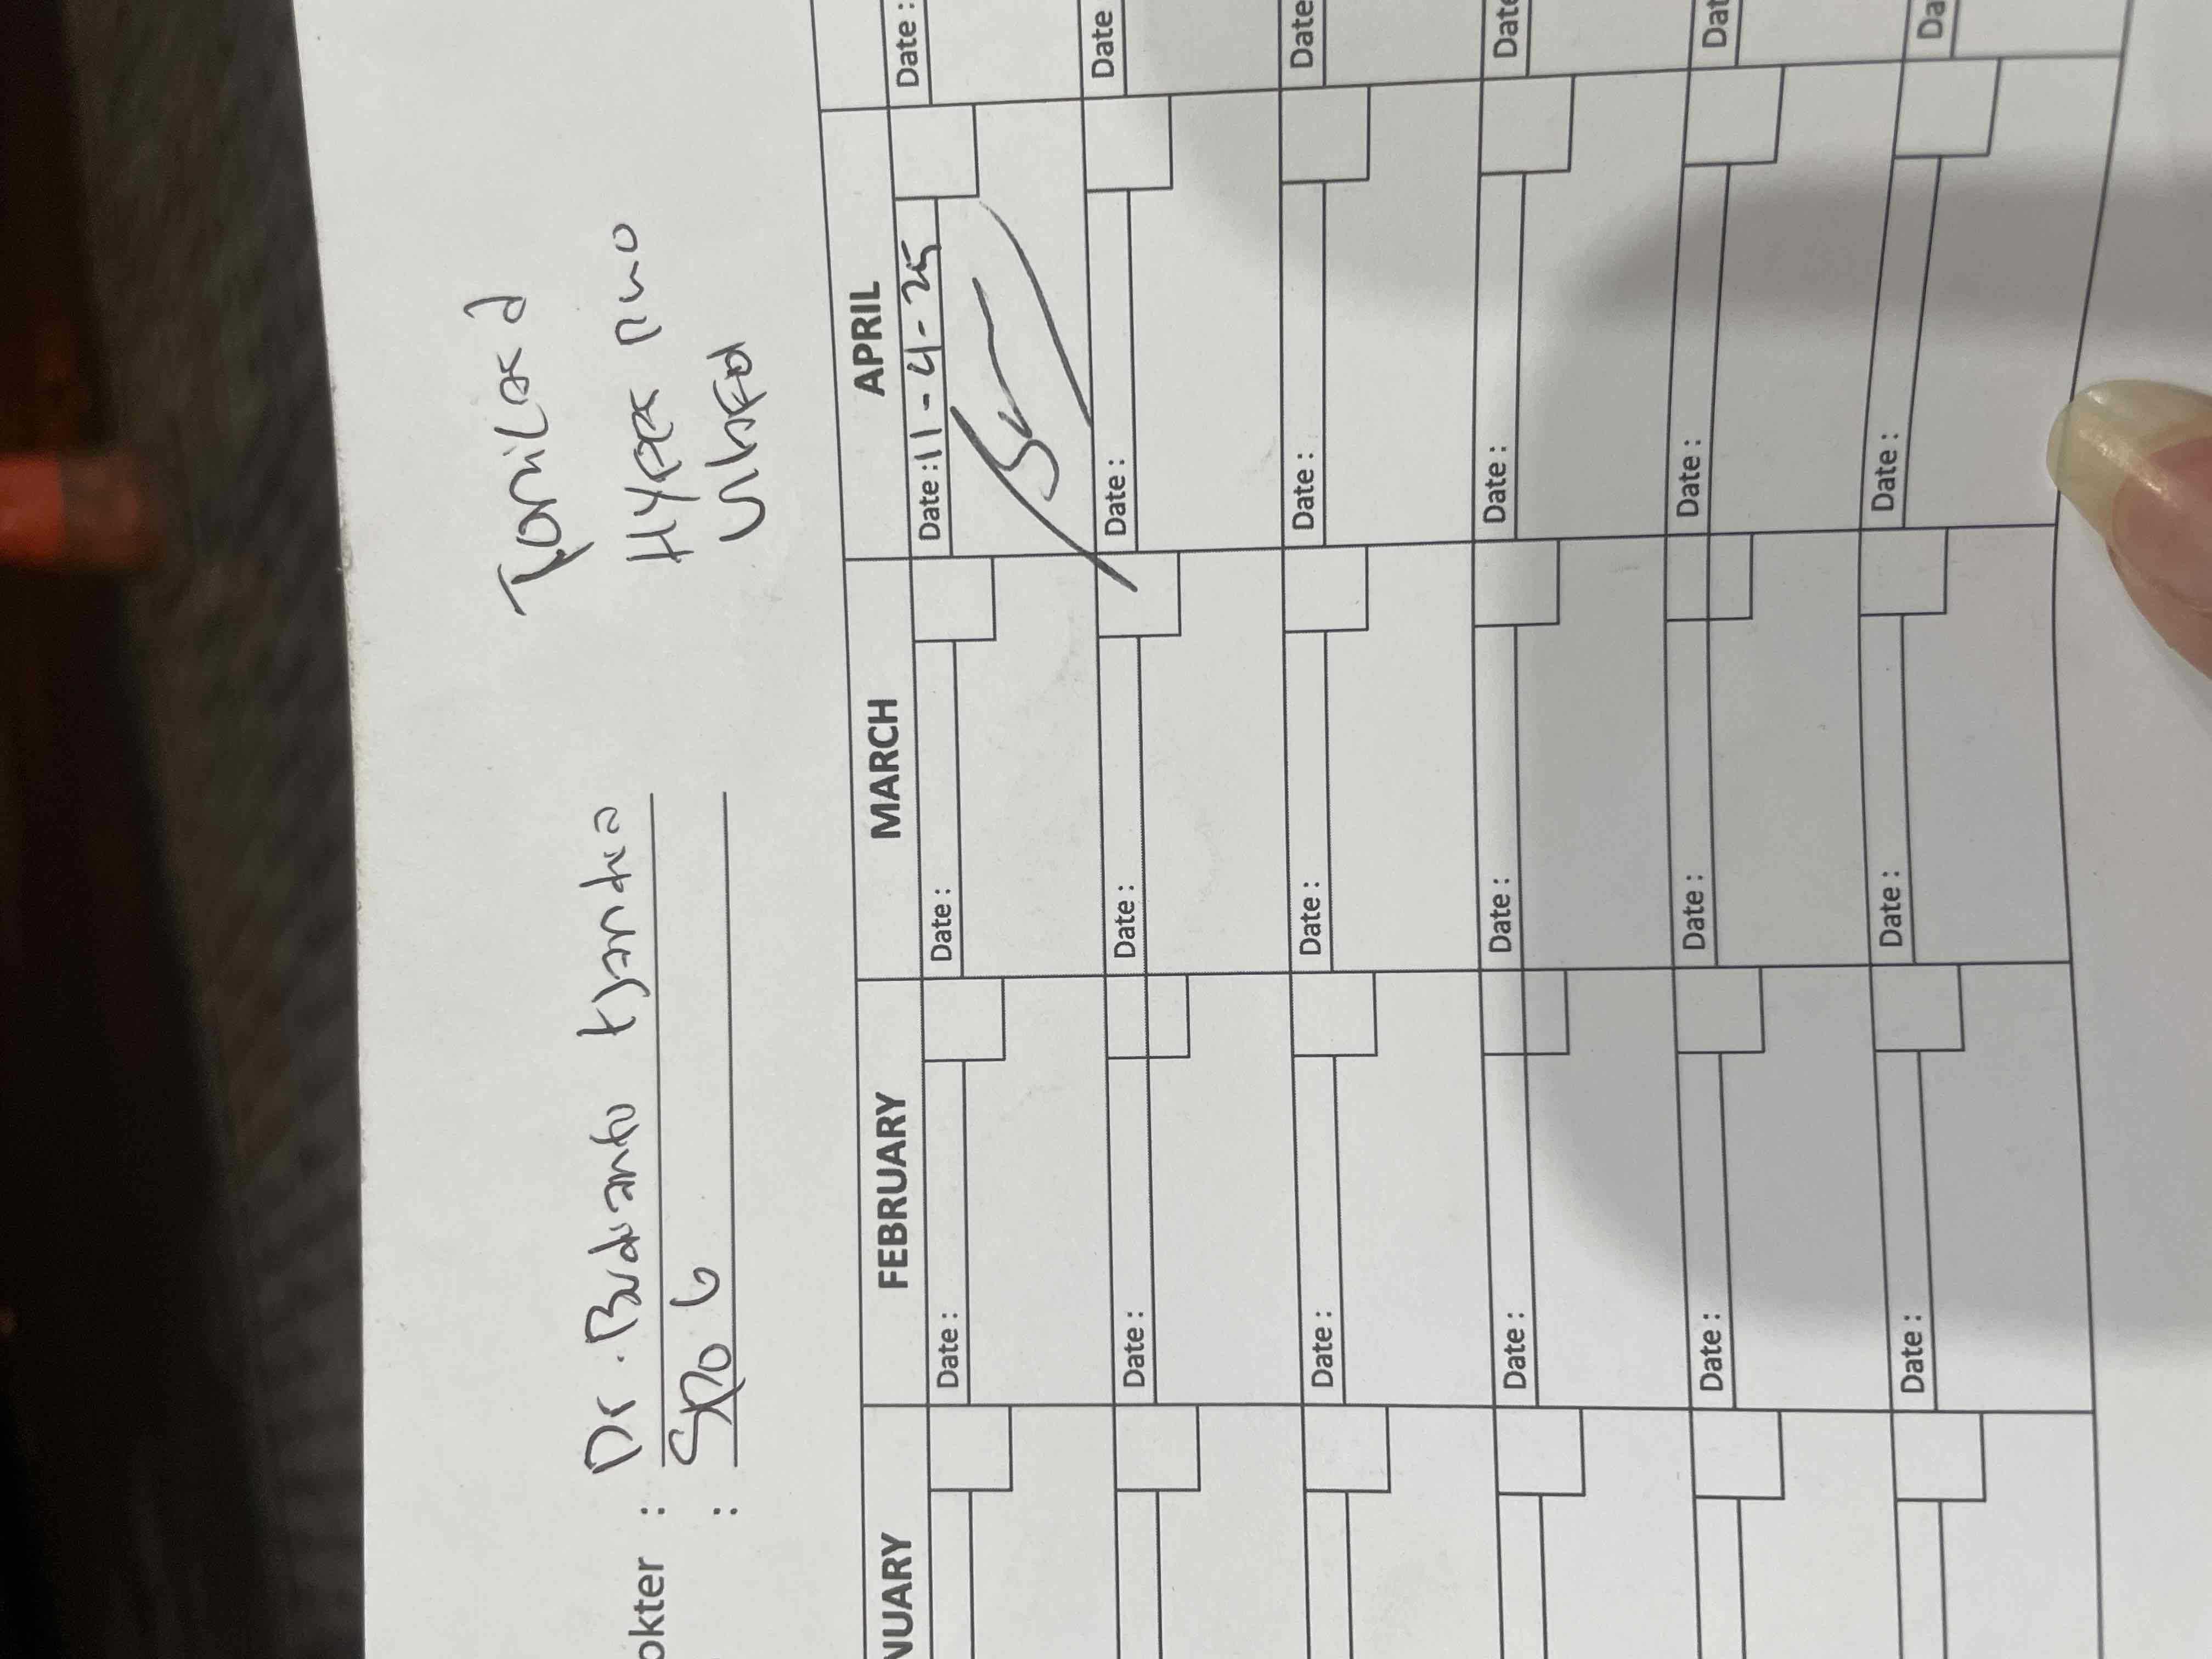 Tonilax 2
Hyper nuo
Vlnfd
okter : Dr. Budianto tjandra
: SpoG
NUARY FEBRUARY MARCH APRIL
Date : Date : Date : 11 - 4 - 25 Date :
Date : Date : Date : Date
Date : Date : Date : Date
Date : Date : Date : Date
Date : Date : Date : Dat
Date : Date : Date : Da